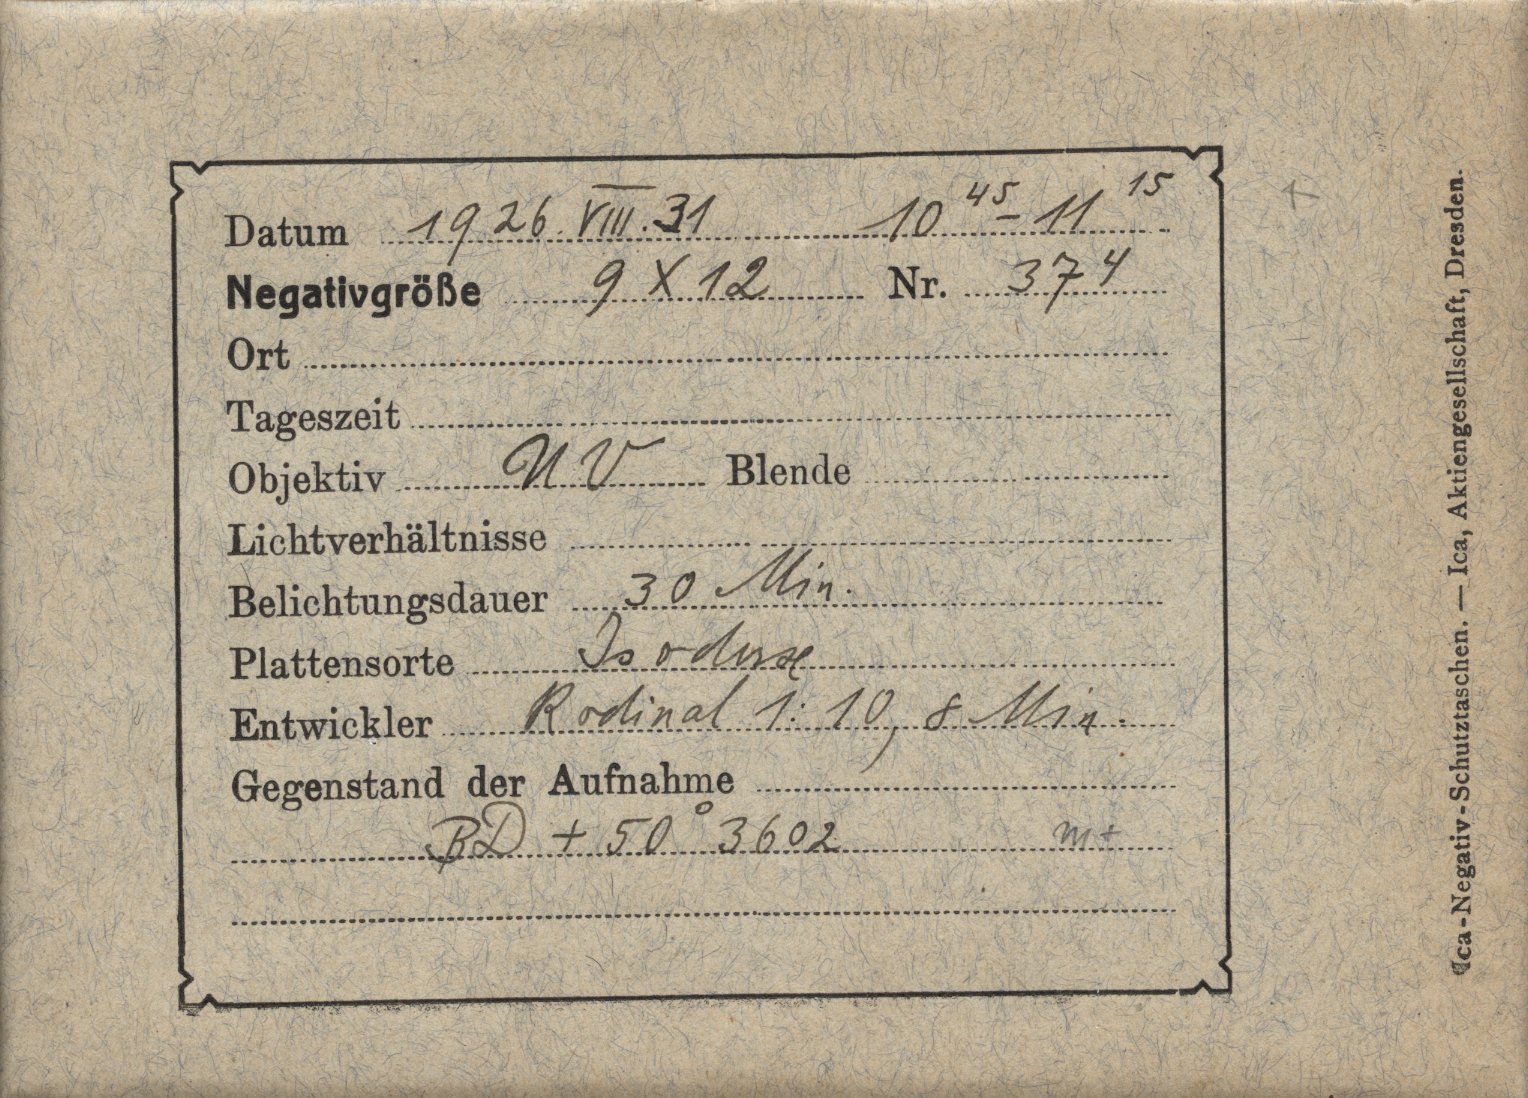 Datum 1926 VIII. 31 10 45 – 11 15
Negativgröße 9 X 12 Nr. 374
Ort
Tageszeit
Objektiv UV Blende
Lichtverhältnisse
Belichtungsdauer 30 Min.
Plattensorte
Entwickler Rodinal 1:10, 8 Min.
Gegenstand der Aufnahme
BD + 50° 3602 m+
Ica-Negativ-Schutztaschen. — Ica, Aktiengesellschaft, Dresden.